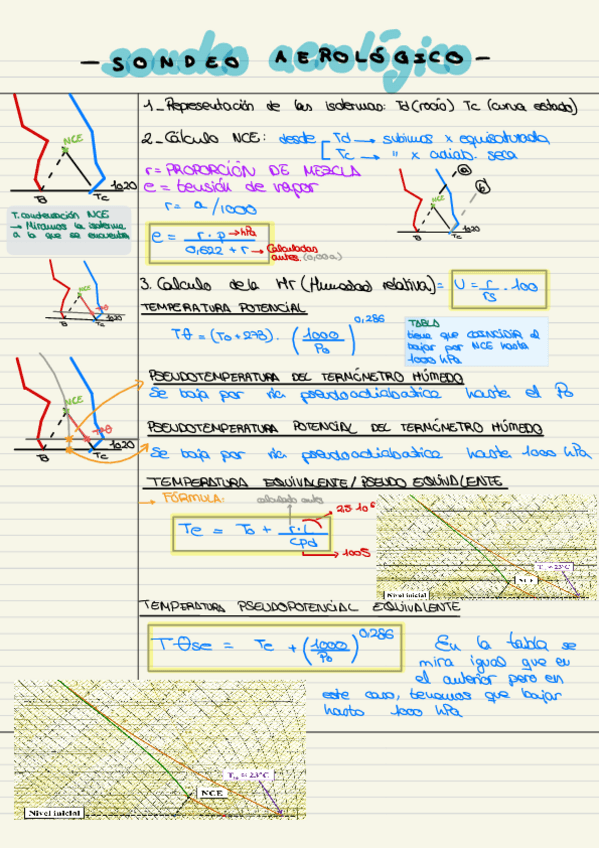 - SONDEO AEROLÓGICO -
1_ Representación de las isotermas: Td (rocío) Tc (curva estado)
2_ Cálculo NCE: desde Td → subimos x equisaturada
Tc → " x adiab. seca
r = PROPORCIÓN DE MEZCLA
e = tensión de vapor
r = a / 1000
e = r · p → hPa
0,622 + r → Calculadas antes. (0,00a)
NCE
1020
Tc
T. condensación NCE
→ Miramos la isoterma a la que se encuentra
NCE
a
b
1020
Tc
3. Calculo de la Hr (Humedad relativa) = U = r / rs · 100
TEMPERATURA POTENCIAL
Tθ = (To + 273) · (1000 / Po) 0,286
TABLA
tiene que coincidir al bajar por NCE hasta 1000 hPa
NCE
Tθ
1020
Tc
PSEUDOTEMPERATURA DEL TERMÓMETRO HÚMEDO
Se baja por via pseudoadiabatica hasta el Po
NCE
Tθ
1020
Tc
PSEUDOTEMPERATURA POTENCIAL DEL TERMÓMETRO HÚMEDO
Se baja por via pseudoadiabatica hasta 1000 hPa
TEMPERATURA EQUIVALENTE / PSEUDO EQUIVALENTE
→ FÓRMULA:
calculado antes
2,5·10⁶
Te = To + r · L / Cpd
→ 1005
= 23°C
NCE
Nivel inicial
TEMPERATURA PSEUDOPOTENCIAL EQUIVALENTE
Tθse = Te + (1000 / Po) 0,286
En la tabla se mira igual que en
el anterior pero en
este caso, tenemos que bajar
hasta 1000 hPa
= 23°C
NCE
Nivel inicial